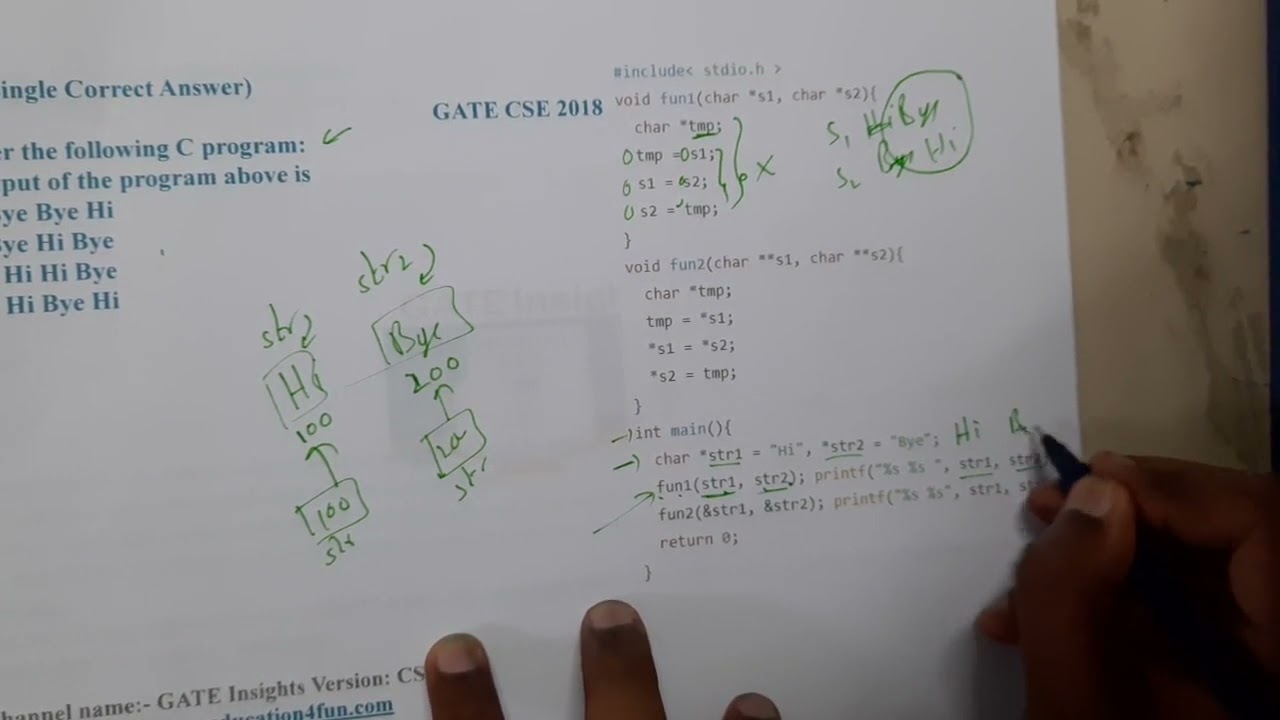 ingle Correct Answer)
er the following C program:
put of the program above is
ye Bye Hi
ye Hi Bye
Hi Hi Bye
Hi Bye Hi
GATE CSE 2018
#include< stdio.h >
void fun1(char *s1, char *s2){
char *tmp;
tmp = s1;
s1 = s2;
s2 = tmp;
}
void fun2(char **s1, char **s2){
char *tmp;
tmp = *s1;
*s1 = *s2;
*s2 = tmp;
}
int main(){
char *str1 = "Hi", *str2 = "Bye"; Hi B
fun1(str1, str2); printf("%s %s ", str1, str2
fun2(&str1, &str2); printf("%s %s", str1, s
return 0;
}
S1 Hi Bye
S2 Bye Hi
str2
str2
Bye
Hi
200
100
100
str
str
GATE Insights
hannel name:- GATE Insights Version: CS
ucation4fun.com